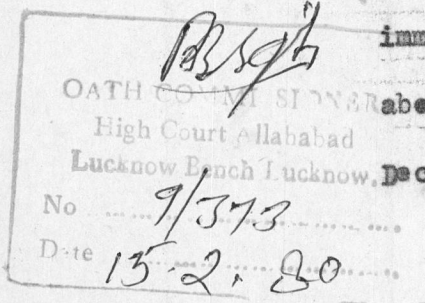 imm
OATH COMMI SIONER
abe
High Court Allahabad
Lucknow Bench Lucknow.
Dec
No 9/373
Date 15.2.80